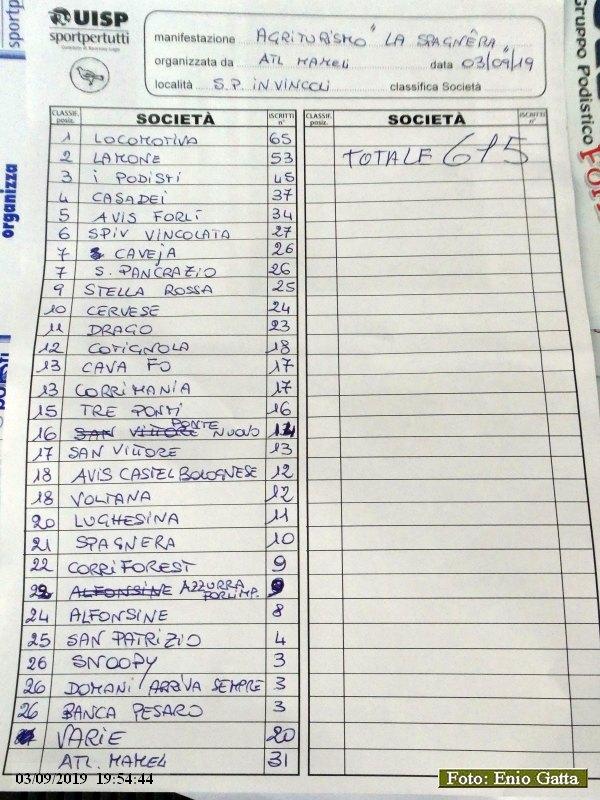 sportp
organizza
UISP
sportpertutti
manifestazione AGRITURISMO "LA SPAGNÊRA"
organizzata da ATL MAMELI data 03/09/19
località S.P. IN VINCOLI classifica Società
Gruppo Podistico
CLASSIF. posiz. SOCIETÀ ISCRITTI n°
1 LOCOMOTIVA 65
2 LAMONE 53
3 I PODISTI 45
4 CASADEI 37
5 AVIS FORLÌ 34
6 SPIV VINCOLATA 27
7 CAVEJA 26
7 S. PANCRAZIO 26
9 STELLA ROSSA 25
10 CERVESE 24
11 DRAGO 23
12 COTIGNOLA 18
13 CAVA FO 17
13 CORRIMANIA 17
15 TRE PONTI 16
16 SAN VITTORE PONTE NUOVO 14
17 SAN VITTORE 13
18 AVIS CASTEL BOLOGNESE 12
18 VOLTANA 12
20 LUGHESINA 11
21 SPAGNERA 10
22 CORRIFOREST 9
22 ALFONSINE AZZURRA FORLIMP. 9
24 ALFONSINE 8
25 SAN PATRIZIO 4
26 SNOOPY 3
26 DOMANI ARRIVA SEMPRE 3
26 BANCA PESARO 3
VARIE 20
ATL. MAMELI 31
CLASSIF. posiz. SOCIETÀ ISCRITTI n°
TOTALE 615
03/09/2019 19:54:44
Foto: Enio Gatta